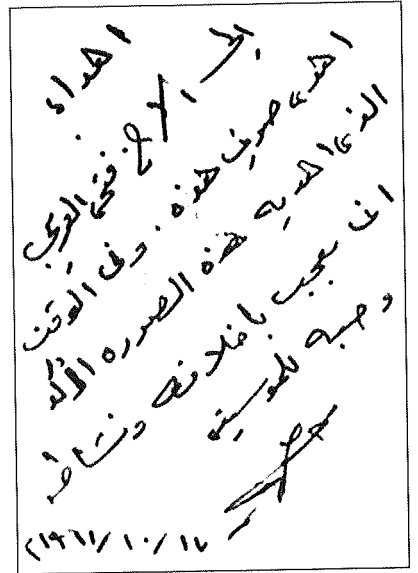 اهداء
إلى الأخ فتحي
اهدي صورتي هذه . وفى الوقت
الذي اهديه هذه الصوره
انى معجب باخلاقه ونشاطه
وحبه للموسيقى
١٩٦١/١٠/١٧